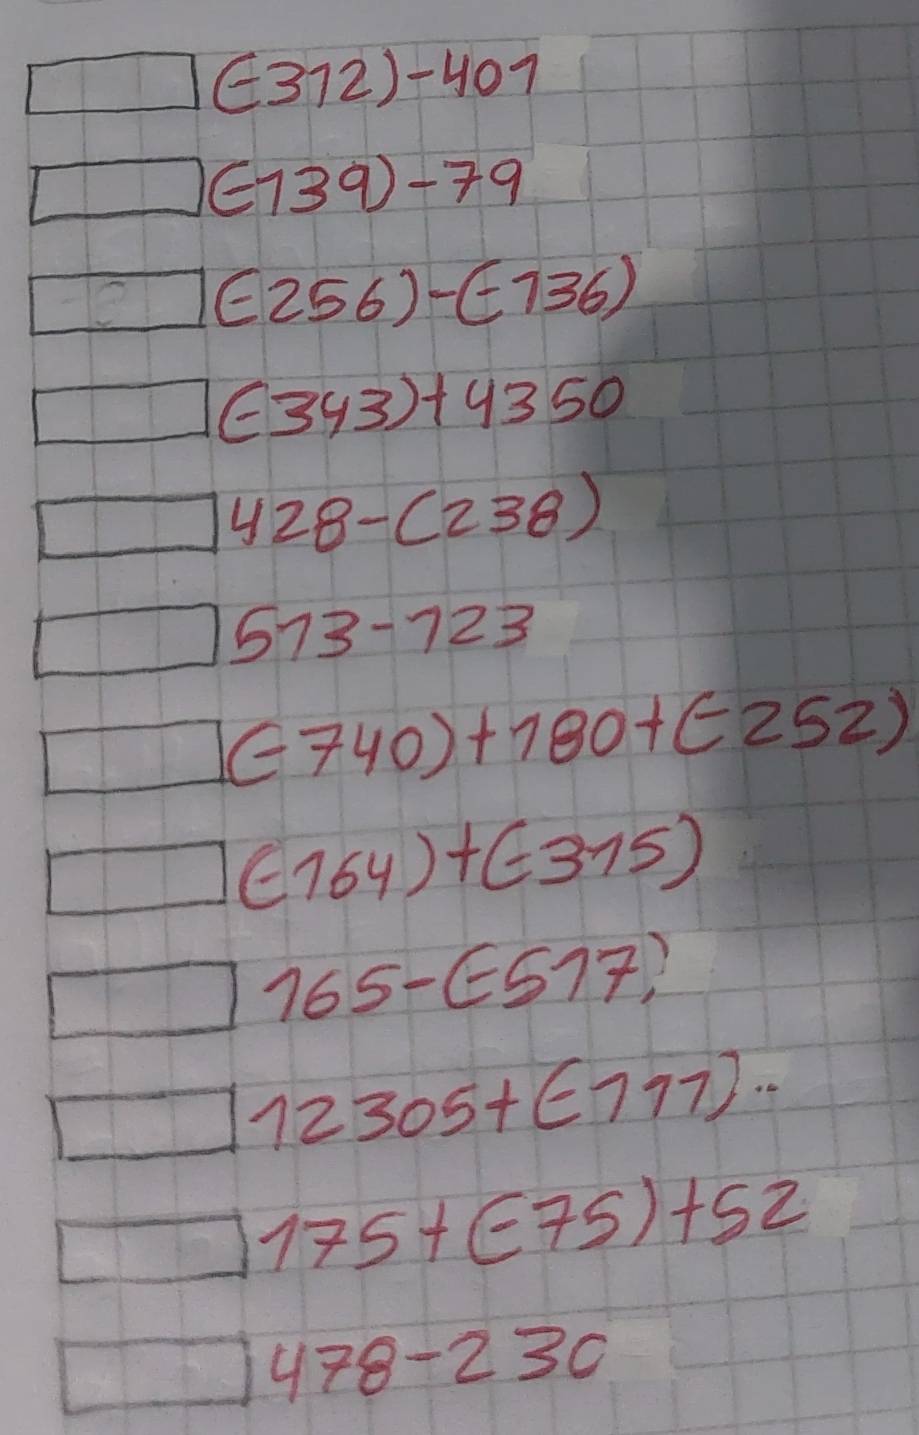 (-312)-401
(-139)-79
(-256)-(-136)
(-343)+4350
428-(238)
513-123
(-740)+180+(-252)
(-164)+(-315)
165-(-517)
12305+(-111)..
175+(-75)+52
478-230